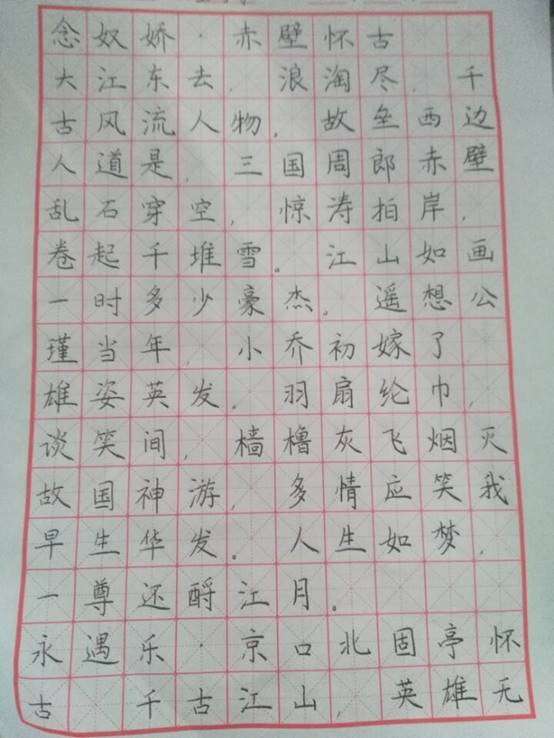 念奴娇·赤壁怀古
大江东去,浪淘尽,千
古风流人物。故垒西边
人道是,三国周郎赤壁
乱石穿空,惊涛拍岸,
卷起千堆雪。江山如画
一时多少豪杰。遥想公
瑾当年,小乔初嫁了,
雄姿英发。羽扇纶巾,
谈笑间,樯橹灰飞烟灭
故国神游,多情应笑我
早生华发。人生如梦,
一尊还酹江月。
永遇乐·京口北固亭怀
古 千古江山,英雄无